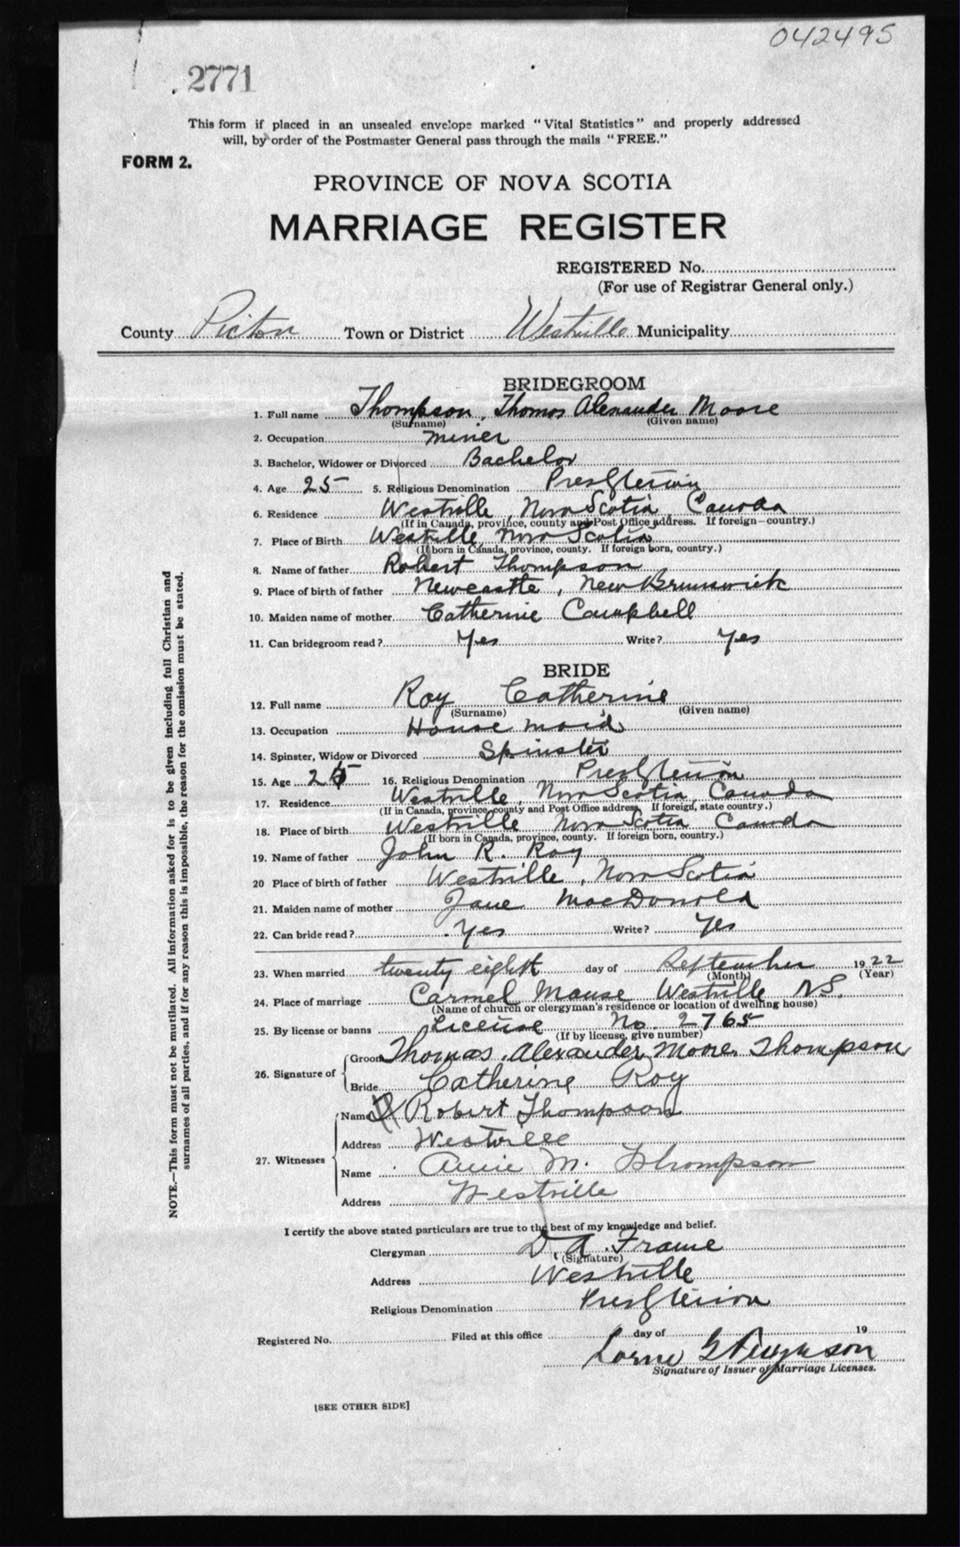 042495
2771
This form if placed in an unsealed envelope marked "Vital Statistics" and properly addressed
will, by order of the Postmaster General pass through the mails "FREE."
FORM 2.
PROVINCE OF NOVA SCOTIA
MARRIAGE REGISTER
REGISTERED No.
(For use of Registrar General only.)
County Pictou Town or District Westville Municipality
BRIDEGROOM
1. Full name Thompson, Thomas Alexander Moore
(Surname) (Given name)
2. Occupation miner
3. Bachelor, Widower or Divorced Bachelor
4. Age 25 5. Religious Denomination Presbyterian
6. Residence Westville, Nova Scotia, Canada
(If in Canada, province, county and Post Office address. If foreign—country.)
7. Place of Birth Westville, Nova Scotia
(If born in Canada, province, county. If foreign born, country.)
8. Name of father Robert Thompson
9. Place of birth of father Newcastle, New Brunswick
10. Maiden name of mother Catherine Campbell
11. Can bridegroom read? Yes Write? Yes
BRIDE
12. Full name Roy Catherine
(Surname) (Given name)
13. Occupation House maid
14. Spinster, Widow or Divorced Spinster
15. Age 16. Religious Denomination Presbyterian
17. Residence Westville, Nova Scotia Canada
(If in Canada, province, county and Post Office address. If foreign, state country.)
18. Place of birth Westville Nova Scotia Canada
(If born in Canada, province, county. If foreign born, country.)
19. Name of father John R. Roy
20 Place of birth of father Westville, Nova Scotia
21. Maiden name of mother Jane MacDonald
22. Can bride read? Yes Write? Yes
23. When married twenty eight day of September 1922
(Month) (Year)
24. Place of marriage Carmel Manse Westville N.S.
(Name of church or clergyman's residence or location of dwelling house)
25. By license or banns License No. 2765
(If by license, give number)
26. Signature of Groom Thomas Alexander Moore Thompson
Bride Catherine Roy
27. Witnesses Name Robert Thompson
Address Westville
Name Annie M. Thompson
Address Westville
I certify the above stated particulars are true to the best of my knowledge and belief.
Clergyman D A. Frame
(Signature)
Address Westville
Religious Denomination Presbyterian
Registered No. Filed at this office day of 19
Lorne G Ferguson
Signature of Issuer of Marriage Licenses.
[SEE OTHER SIDE]
NOTE.—This form must not be mutilated. All information asked for is to be given including full Christian and
surnames of all parties, and if for any reason this is impossible, the reason for the omission must be stated.